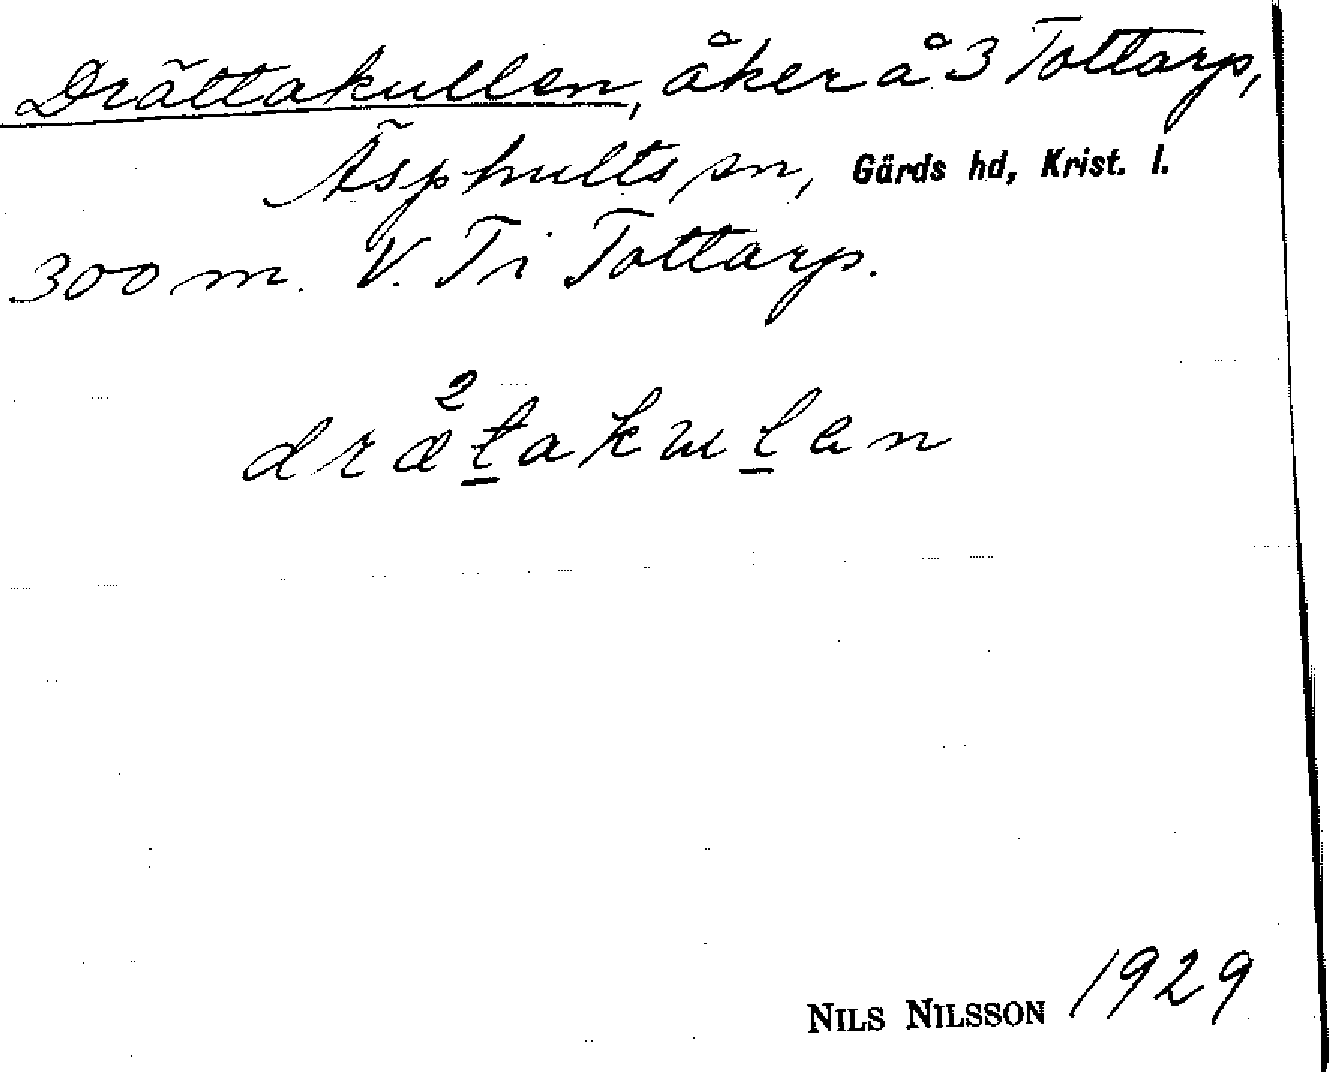 Drättakullen, åker å 3 Tottarp,
Äsphults sn, Gärds hd, Krist. l.
300 m. V. T i Tottarp.
dræ²takulen
NILS NILSSON 1929